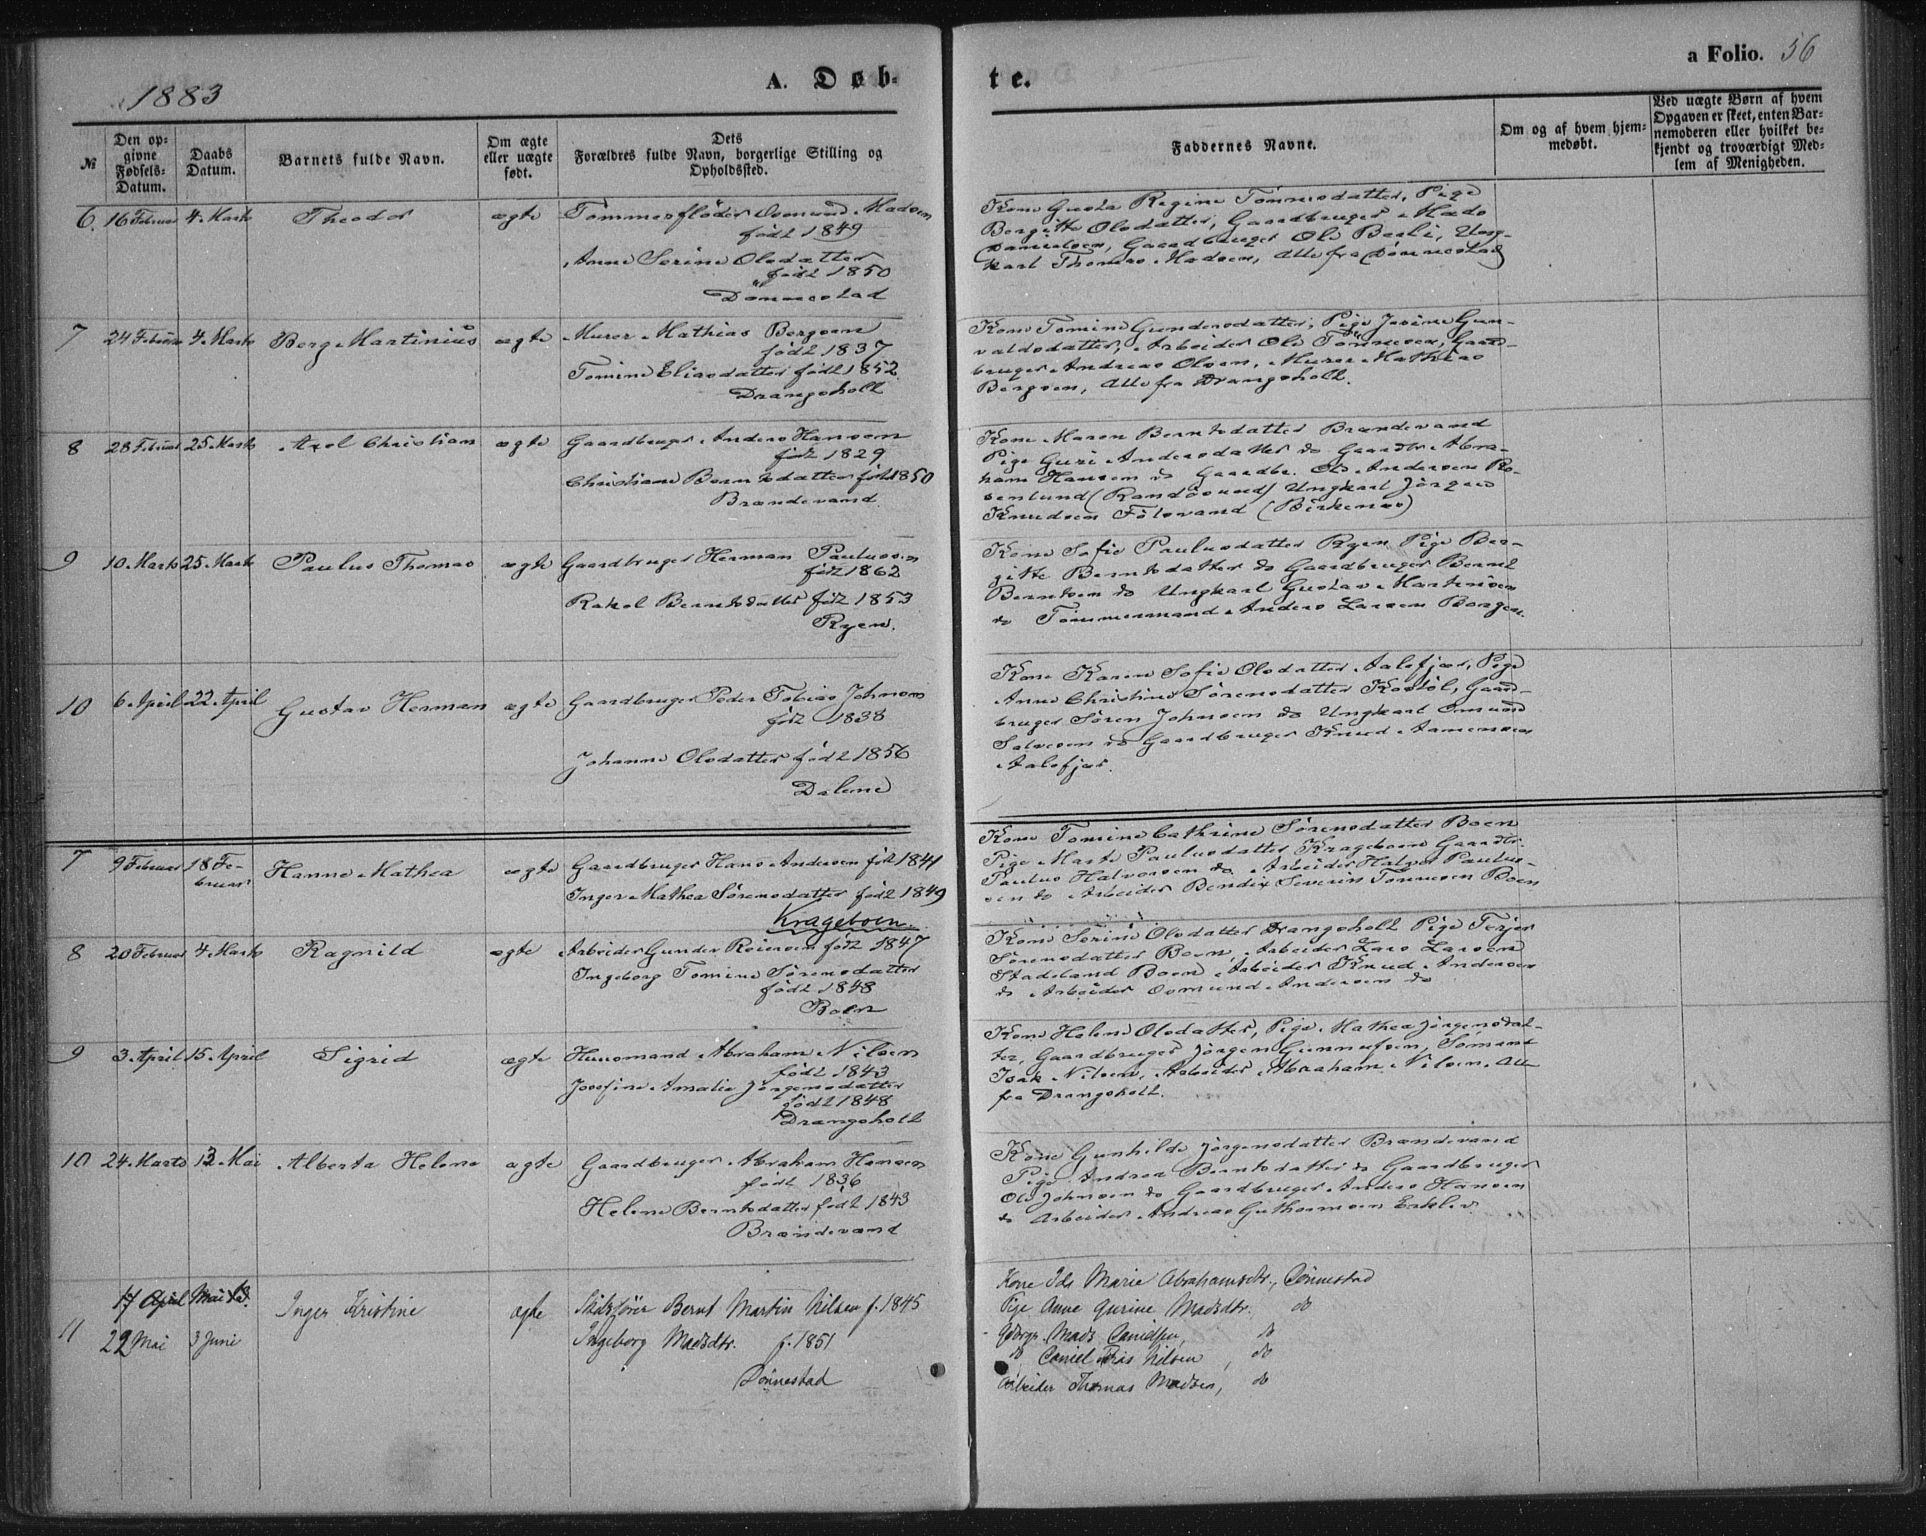 1883
A. Døb-
te.
a Folio. 56
№
Den op-
givne
Fødsels-
Datum.
Daabs
Datum.
Barnets fulde Navn.
Om ægte
eller uægte
født.
Dets
Forældres fulde Navn, borgerlige Stilling og
Opholdssted.
Faddernes Navne.
Om og af hvem hjem-
medøbt.
Ved uægte Børn af hvem
Opgaven er skeet, enten Bar-
nemoderen eller hvilket be-
kjendt og troværdigt Med-
lem af Menigheden.
6. 16 Februar 4. Marts Theodor ægte Tømmerfløder Osmund Madsen
født 1849
Anne Serine Olsdatter
født 1850
Dønnestad
Kone Gusta Regine Tønnesdatter, Pige
Bergitte Olsdatter, Gaardbruger Mads
Danielsen, Gaardbruger Ole Berli, Ung-
karl Thomas Madsen, Alle fra Dønnestad
7 24 Februar 4. Marts Berg Martinius ægte Murer Mathias Bergsen
født 1837
Tomine Eliasdatter født 1852
Drangsholt
Kone Tomine Gundersdatter, Pige Josine Gun-
valdsdatter, Arbeider Ole Tønnesen, Gaard-
bruger Andreas Olsen, Murer Mathias
Bergsen, Alle fra Drangsholt.
8 28 Februar 25. Marts Axel Christian ægte Gaardbruger Anders Hansen
født 1829
Christiane Berntsdatter født 1850
Brændevand
Kone Maren Berntsdatter Brændevand
Pige Guri Andersdatter do Gaardbr. Abra-
ham Hansen do Gaardbr. Ole Andersen Ro-
senlund (Randøsund) Ungkarl Jørgen
Knudsen Fölevand (Birkenæs)
9 10. Marts 25. Marts Paulus Thomas ægte Gaardbruger Herman Paulusen
født 1862
Rakel Berntsdatter født 1853
Ryen.
Kone Sofie Paulusdatter Ryen Pige Ber-
gitte Berntsdatter do Gaardbruger Bernt
Berntsen do Ungkarl Gustav Martinsen
do Tømmermand Anders Larsen Borgen.
10 6. April 22. April Gustav Herman ægte Gaardbruger Peder Tobias Johnsen
født 1838
Johanne Olsdatter født 1856
Dalene
Kone Karen Sofie Olsdatter Aalefjær, Pige
Anne Christine Sørensdatter Kostøl, Gaard-
bruger Søren Johnsen do Ungkarl Omund
Salvesen do Gaardbruger Knud Aamensen
Aalefjær.
7 9 Februar 18 Fe-
bruar Hanne Mathea ægte Gaardbruger Hans Andersen født 1841
Inger Mathea Sørensdatter født 1849
Krageboen
Kone Tomine Cathrine Sørensdatter Boen
Pige Marte Paulusdatter Krageboen Gaardbr.
Paulus Halvorsen do Arbeider Halvor Paulus-
sen do Arbeider Bendix Severin Tønnesen Boen
8 20 Februar 4. Marts Ragnild ægte Arbeider Gunder Reiersen født 1847
Ingeborg Tomine Sørensdatter
født 1848
Boen
Kone Serine Olsdatter Drangsholt Pige Terjer
Sørensdatter Boen, Arbeider Lars Larsen
Stadeland Boen, Arbeider Knud Andersen
do Arbeider Osmund Andersen do
9 3. April 15. April Sigrid ægte Huusmand Abraham Nilsen
født 1843
Josefine Amalie Jørgensdatter
født 1848
Drangsholt
Kone Helene Olsdatter, Pige Mathea Jørgensdat-
ter, Gaardbruger Jørgen Gunnufsen, Sømand
Isak Nilsen, Arbeider Abraham Nilsen, Alle
fra Drangsholt.
10 24. Marts 13. Mai Alberta Helene ægte Gaardbruger Abraham Hansen
født 1836
Helene Berntsdatter født 1843
Brændevand
Kone Gunhilde Jørgensdatter Brændevand
Pige Andrea Berntsdatter do Gaardbruger
Ole Johnsen do Gaardbruger Anders Hansen
do Arbeider Andreas Guthormsen Erklev
17 April Mai 13.
11 22 Mai 3 Juni Inger Kristine ægte Skibsfører Bernt Martin Nilsen f. 1845
Ingeborg Madsdtr. f. 1851
Dønnestad
Kone Ida Marie Abrahamsdtr., Dønnestad
Pige Anne Gurine Madsdtr. do
Gdbrgr. Mads Danielsen, do
do Daniel Nilsen, do
Arbeider Thomas Madsen, do